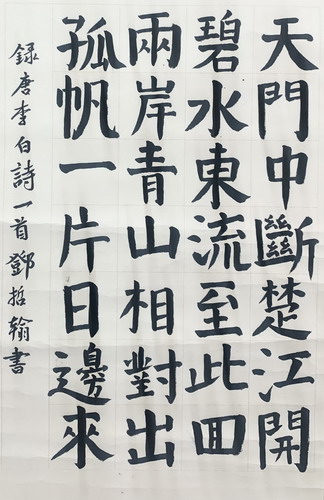 天門中斷楚江開
碧水東流至此回
兩岸青山相對出
孤帆一片日邊來
録唐李白詩一首鄧哲翰書